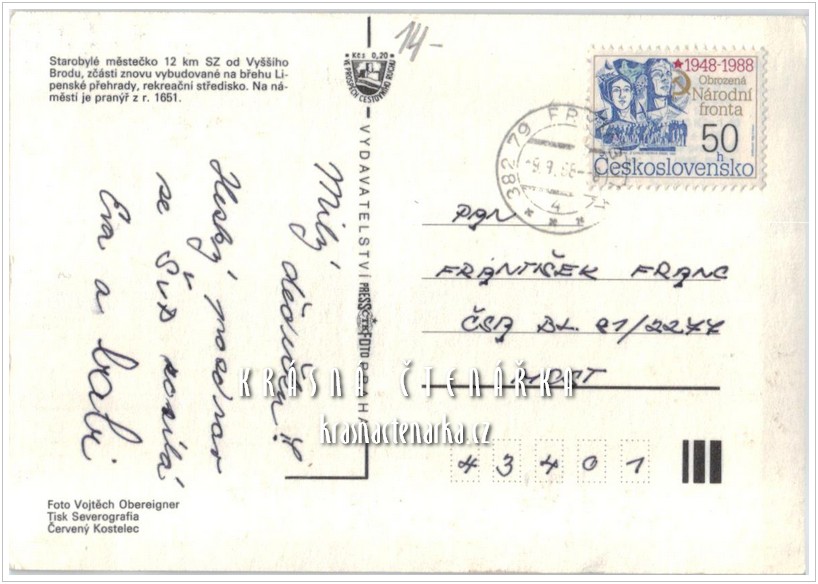 Starobylé městečko 12 km SZ od Vyššího
Brodu, zčásti znovu vybudované na břehu Li-
penské přehrady, rekreační středisko. Na ná-
městí je pranýř z r. 1651.
14-
Kčs 0,20
VE PROSPĚCH CESTOVNÍHO RUCHU
VYDAVATELSTVÍ PRESSFOTO PRAHA
1948-1988
Obrozená
Národní
fronta
50
h
Československo
382 79
Milý dědečku!
Hezký pozdrav
se Šu posílá
Eva a babi
PAN
FRANTIŠEK FRANC
ČSA BL. 21/2277
MOST
43401
KRÁSNÁ ČTENÁŘKA
krasnactenarka.cz
Foto Vojtěch Obereigner
Tisk Severografia
Červený Kostelec